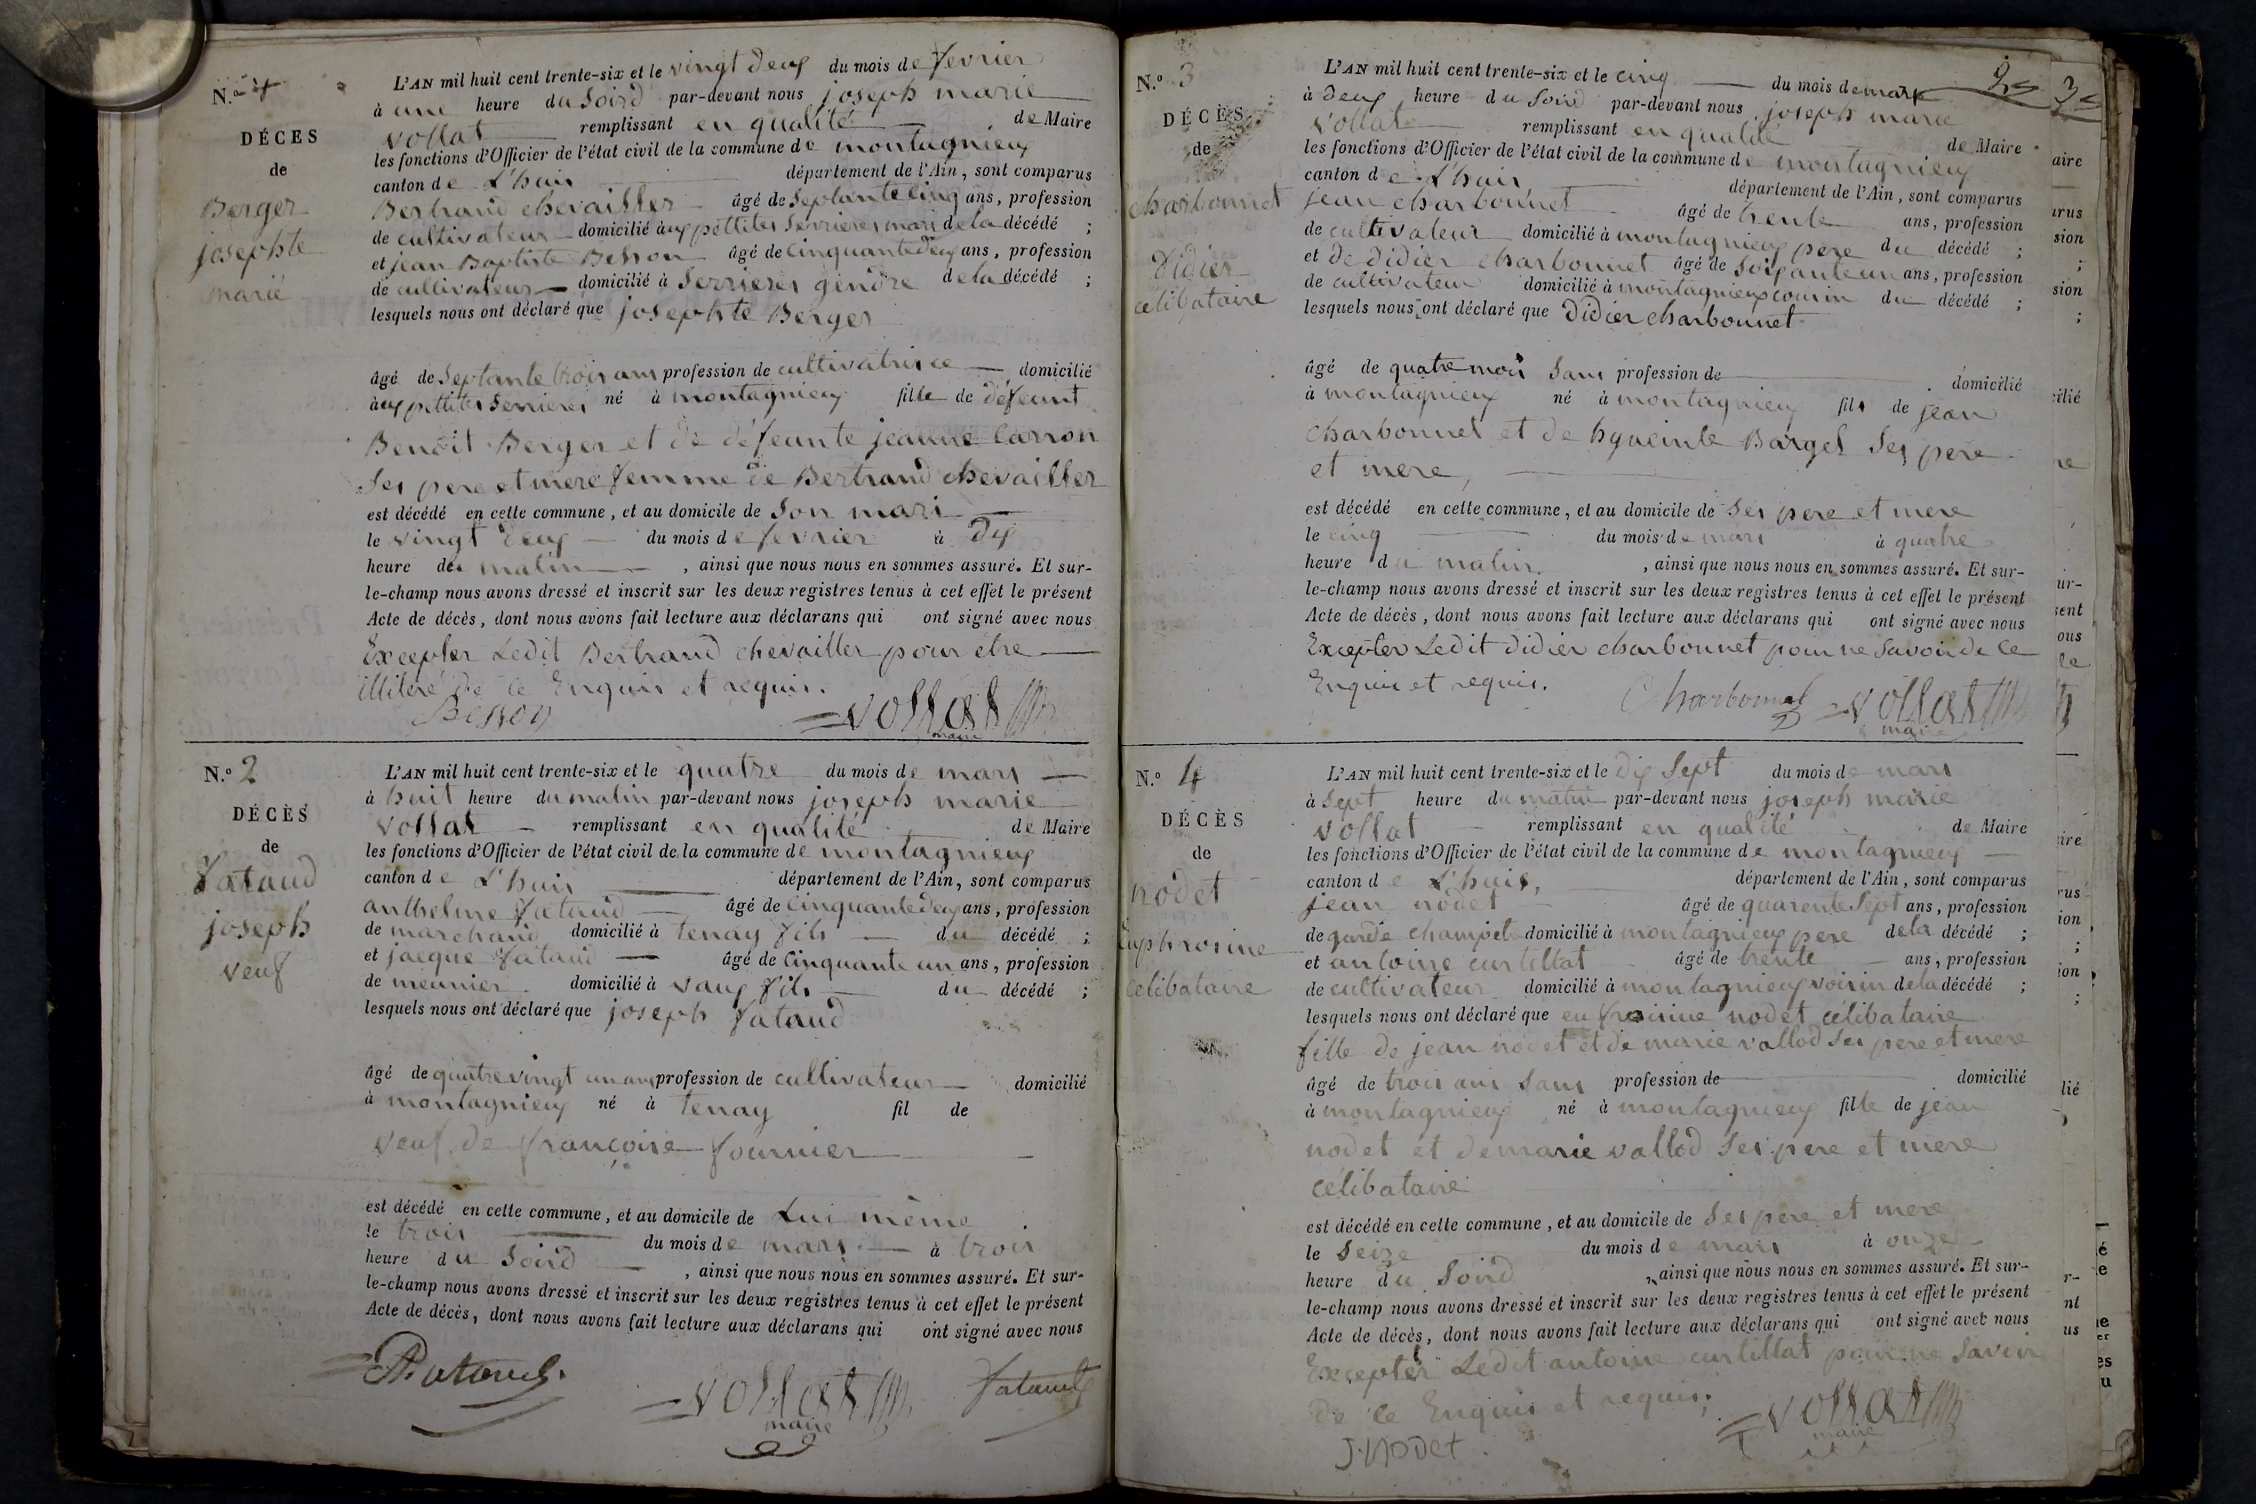 N.º 1
DÉCES
de
Berger
josephte
marié
L'AN mil huit cent trente-six et le vingt deux du mois de fevrier
à une heure du Soird par-devant nous joseph marie
vollat remplissant en qualité de Maire
les fonctions d'Officier de l'état civil de la commune de montagnieux
canton de L'huis département de l'Ain, sont comparus
Bertrand chevailler âgé de Septante cinq ans, profession
de cultivateur domicilié à aux pettites Serrieres mari de la décédé ;
et jean Baptiste Besson âgé de cinquante deux ans, profession
de cultivateur domicilié à Serrieres gendre de la décédé ;
lesquels nous ont déclaré que josephte Berger
âgé de Septante trois ans profession de cultivatrice domicilié
à aux pettites Serrieres né à montagnieux fille de défeunt
Benoit Berger et de défeunte jeanne Carron
Ses pere et mere femme de Bertrand chevailler
est décédé en cette commune, et au domicile de Son mari
le vingt deux du mois de fevrier à dix
heure du matin , ainsi que nous nous en sommes assuré. Et sur-
le-champ nous avons dressé et inscrit sur les deux registres tenus à cet effet le présent
Acte de décès, dont nous avons fait lecture aux déclarans qui ont signé avec nous
Excepter Ledit Bertrand chevailler pour être
illiteré de ce Enquis et requis.
Besson vollat
maire
N.º 2
DÉCÈS
de
fataud
joseph
veuf
L'AN mil huit cent trente-six et le quatre du mois de mars
à huit heure du matin par-devant nous joseph marie
vollat remplissant en qualité de Maire
les fonctions d'Officier de l'état civil de la commune de montagnieux
canton de L'huis département de l'Ain, sont comparus
anthelme fataud âgé de cinquante deux ans, profession
de marchand domicilié à tenay fils du décédé ;
et jacque fataud âgé de Cinquante un ans, profession
de meunier domicilié à vaux fils du décédé ;
lesquels nous ont déclaré que joseph fataud
âgé de quatre vingt un ans profession de cultivateur domicilié
à montagnieux né à tenay fil de
veuf de françoise fournier
est décédé en cette commune, et au domicile de Lui même
le trois du mois de mars à trois
heure du Soird , ainsi que nous nous en sommes assuré. Et sur-
le-champ nous avons dressé et inscrit sur les deux registres tenus à cet effet le présent
Acte de décès, dont nous avons fait lecture aux déclarans qui ont signé avec nous
vollat fataud
maire
N.º 3
DÉCÈS
de
charbonnet
Didier
célibataire
L'AN mil huit cent trente-six et le cinq du mois de mars
à deux heure du Soird par-devant nous joseph marie
vollat remplissant en qualité de Maire
les fonctions d'Officier de l'état civil de la commune de montagnieux
canton de L'huis département de l'Ain, sont comparus
jean charbonnet âgé de trente ans, profession
de cultivateur domicilié à montagnieux pere du décédé ;
et de didier charbonnet âgé de Soixante un ans, profession
de cultivateur domicilié à montagnieux cousin du décédé ;
lesquels nous ont déclaré que Didier charbonnet
âgé de quatre mois Sans profession de domicilié
à montagnieux né à montagnieux fils de jean
charbonnet et de hyacinte Barget Ses pere
et mere,
est décédé en cette commune, et au domicile de Ses pere et mere
le cinq du mois de mars à quatre
heure du matin. , ainsi que nous nous en sommes assuré. Et sur-
le-champ nous avons dressé et inscrit sur les deux registres tenus à cet effet le présent
Acte de décès, dont nous avons fait lecture aux déclarans qui ont signé avec nous
Excepter Ledit didier charbonnet pour ne Savoir de ce
Enquis et requis.
Charbonnet vollat
maire
N.º 4
DÉCÈS
de
nodet
Euphrosine
célibataire
L'AN mil huit cent trente-six et le dix Sept du mois de mars
à Sept heure du matin par-devant nous joseph marie
vollat remplissant en qualité de Maire
les fonctions d'Officier de l'état civil de la commune de montagnieux
canton de L'huis, département de l'Ain, sont comparus
jean nodet âgé de quarente Sept ans, profession
de garde champêt domicilié à montagnieux pere de la décédé ;
et antoine curtillat âgé de trente ans, profession
de cultivateur domicilié à montagnieux voisin de la décédé ;
lesquels nous ont déclaré que eufrosine nodet célibataire
fille de jean nodet et de marie vallod Ses pere et mere
âgé de trois ans Sans profession de domicilié
à montagnieux né à montagnieux fille de jean
nodet et de marie vallod Ses pere et mere
célibataire
est décédé en cette commune, et au domicile de Ses pere et mere
le Seize du mois de mars à onze
heure du Soird , ainsi que nous nous en sommes assuré. Et sur-
le-champ nous avons dressé et inscrit sur les deux registres tenus à cet effet le présent
Acte de décès, dont nous avons fait lecture aux déclarans qui ont signé avec nous
Excepter Ledit antoine curtillat pour ne Savoir
de ce Enquis et requis;
vollat
maire
J. Nodet